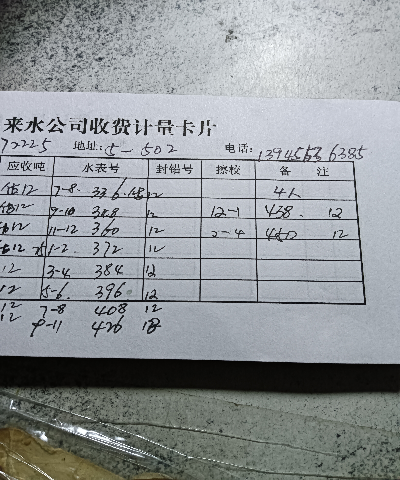 来水公司收费计量卡片
72225 地址: 5-502 电话:
应收吨 水表号 封铅号 擦校 备注
估12 7-8 336 12 4人
估12 9-10 348 12 12-1 438. 12
估12 11-12 360 12 2-4 450 12
估12 1-2. 372 12
12 3-4 384 12
12 5-6. 396 12
12 7-8 408 12
12 9-11 426 18